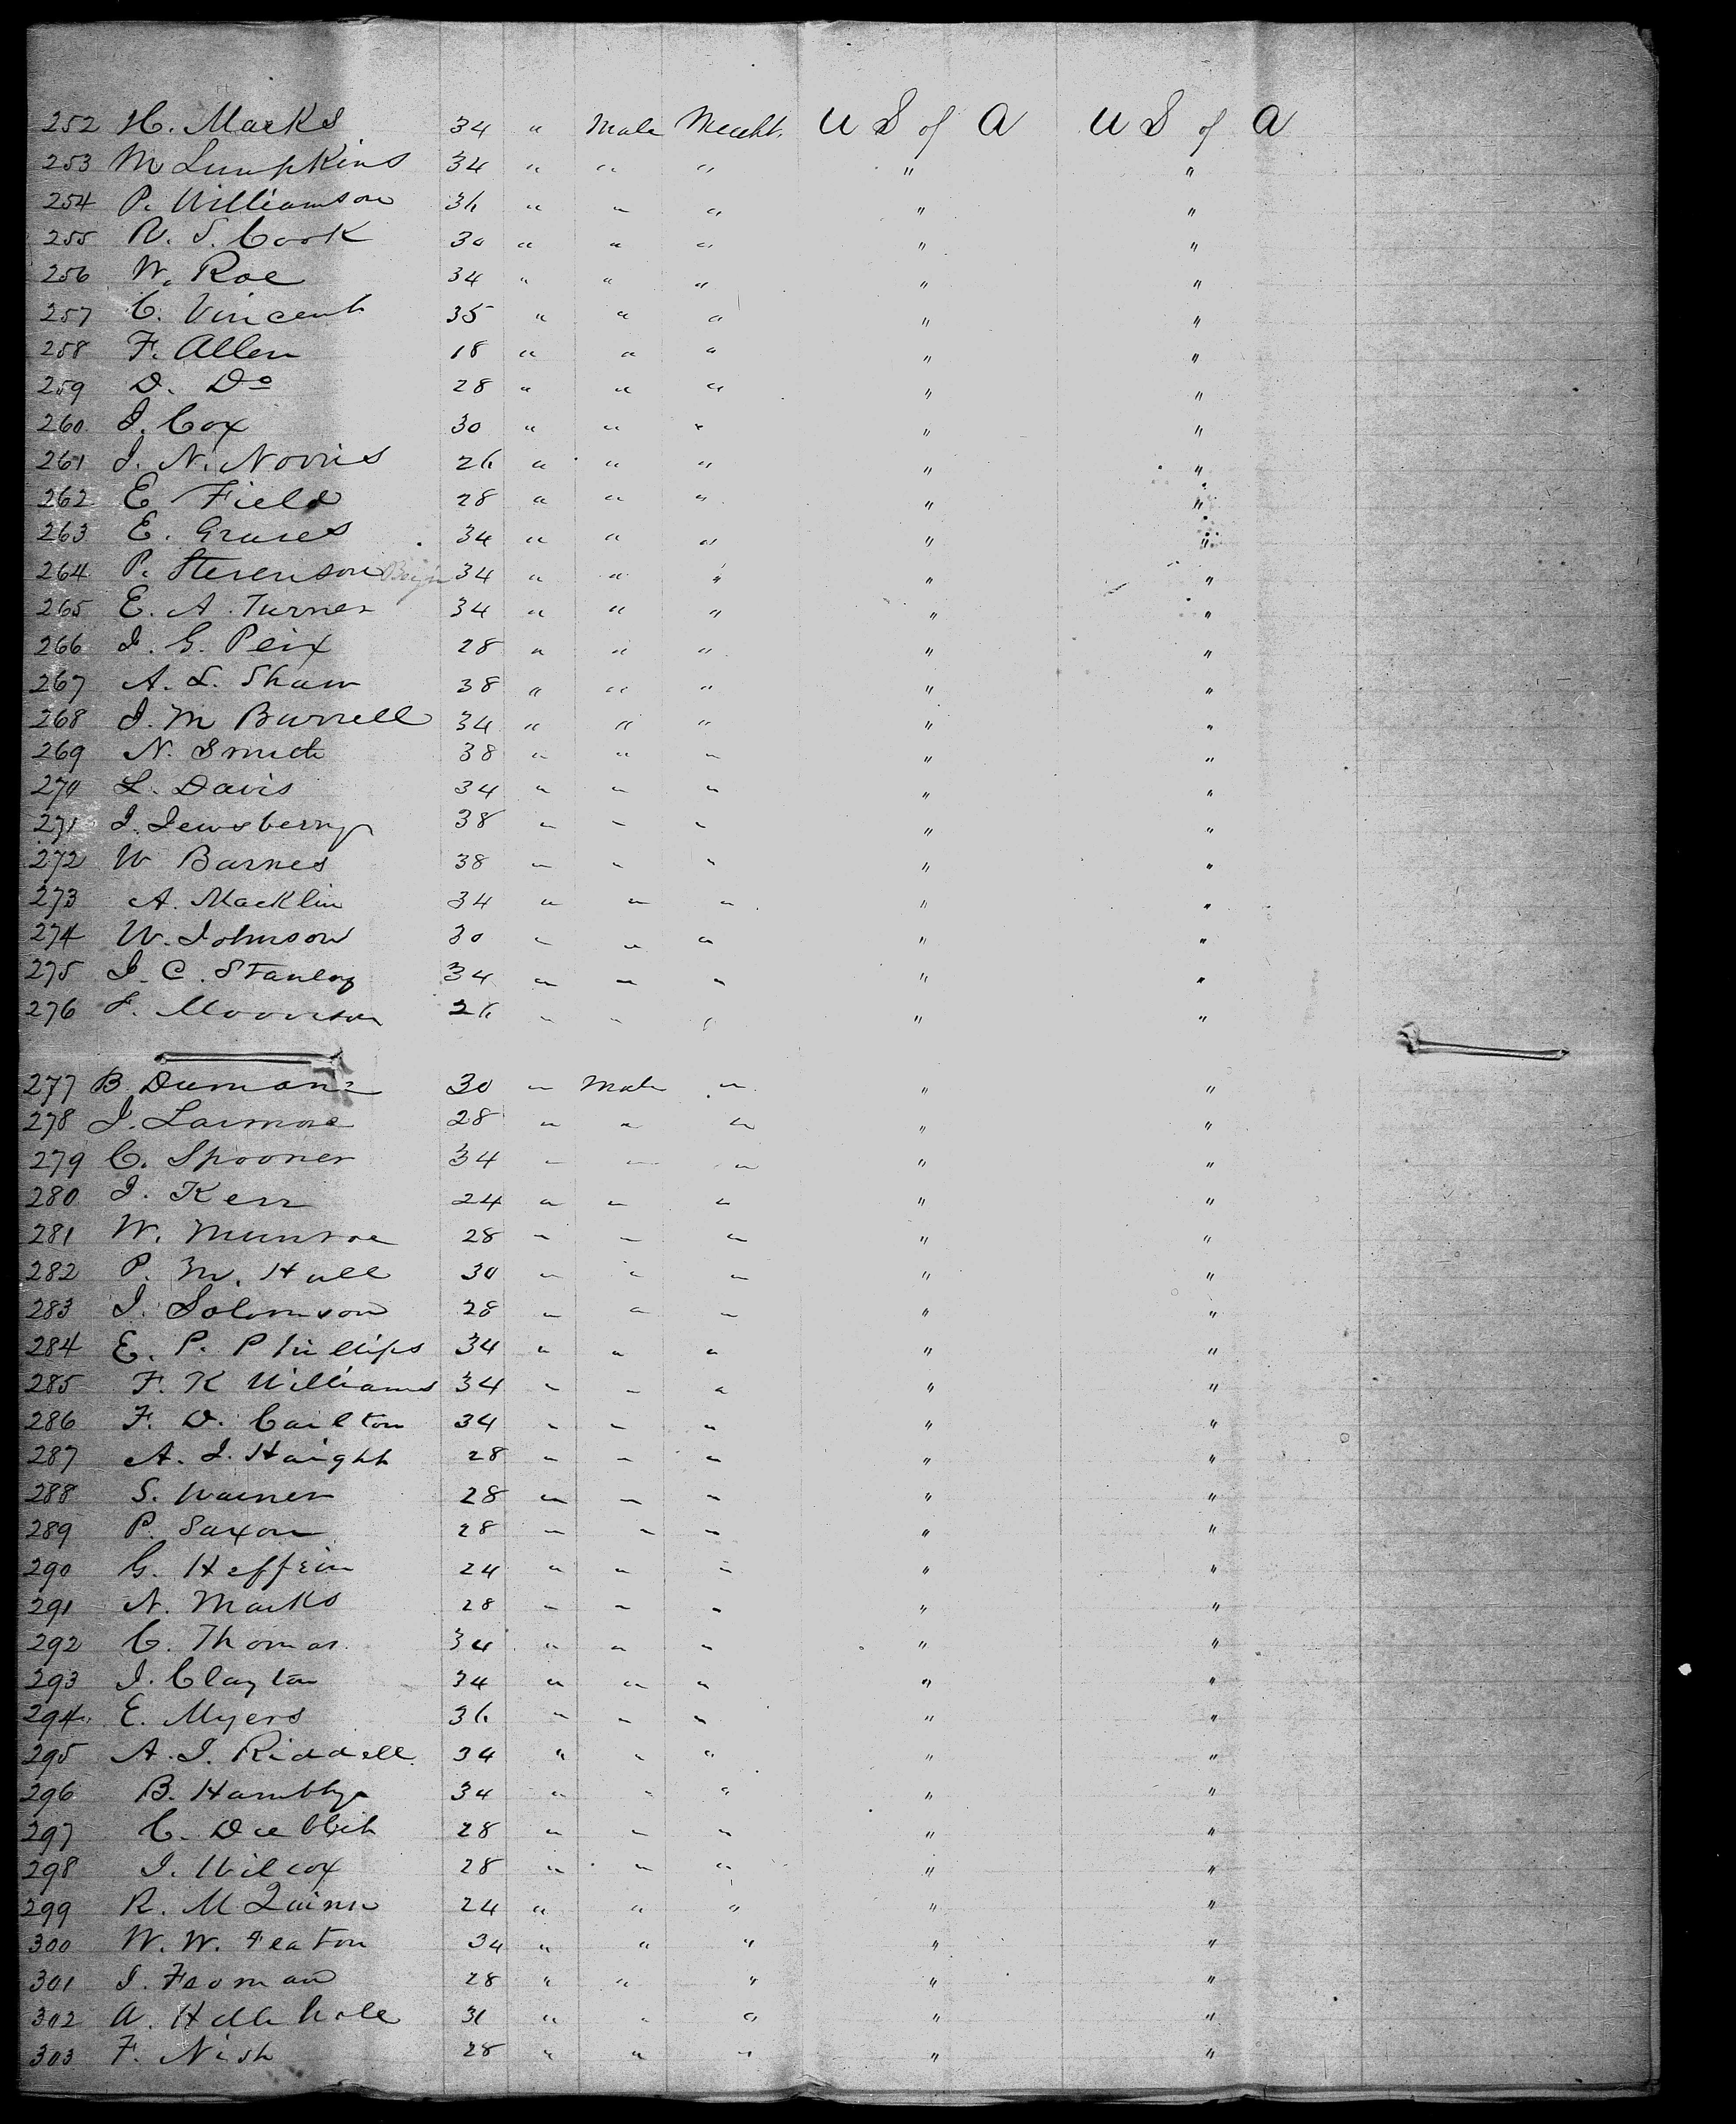 252 H. Marks 34 " Male Mecht. U S of A U S of A
253 M Lumpkins 34 " " " " "
254 P. Williamson 36 " " " " "
255 R. S. Cook 30 " " " " "
256 W. Roe 34 " " " " "
257 C. Vincent 35 " " " " "
258 F. Allen 18 " " " " "
259 D. Do 28 " " " " "
260 J. Cox 30 " " " " "
261 J. N. Norris 26 " " " " "
262 E Field 28 " " " " "
263 E. Graves 34 " " " " "
264 P. Stevenson 34 " " " " "
265 E. A. Turner 34 " " " " "
266 J. G. Peix 28 " " " " "
267 A. L. Shaw 38 " " " " "
268 J. M Burrell 34 " " " " "
269 N. Smith 38 " " " " "
270 L. Davis 34 " " " " "
271 J. Jewsberry 38 " " " " "
272 W Barnes 38 " " " " "
273 A. Macklin 34 " " " " "
274 W. Johnson 30 " " " " "
275 J. C. Stanley 34 " " " " "
276 F. Moorison 26 " " " " "
277 B. Dumont 30 " Male " " "
278 J. Larmore 28 " " " " "
279 C. Spooner 34 " " " " "
280 J. Kerr 24 " " " " "
281 W. Munroe 28 " " " " "
282 P. M. Hall 30 " " " " "
283 J. Solomson 28 " " " " "
284 E. P. Phillips 34 " " " " "
285 F. K Williams 34 " " " " "
286 F. D. Carlton 34 " " " " "
287 A. J. Haight 28 " " " " "
288 S. Warner 28 " " " " "
289 P. Saxon 28 " " " " "
290 G. Heffein 24 " " " " "
291 N. Marks 28 " " " " "
292 C. Thomas. 34 " " " " "
293 J. Clayton 34 " " " " "
294 E. Myers 36 " " " " "
295 A. J. Riddell 34 " " " " "
296 B. Hambly 34 " " " " "
297 C. 28 " " " " "
298 J. Wilcox 28 " " " " "
299 R. M Quinn 24 " " " " "
300 W. W. Featon 34 " " " " "
301 J. Froman 28 " " " " "
302 31 " " " " "
303 F. Nish 28 " " " " "